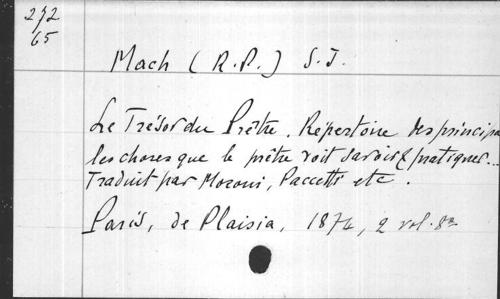 272
65
Mach (R.P.) S.J.
Le Trésor du Prêtre. Répertoire des principa
les choses que le prêtre doit savoir & pratiquer...
Traduit par Moroni, Paccetti etc.
Paris, de Plaisia, 1874, 2 vol. 8º